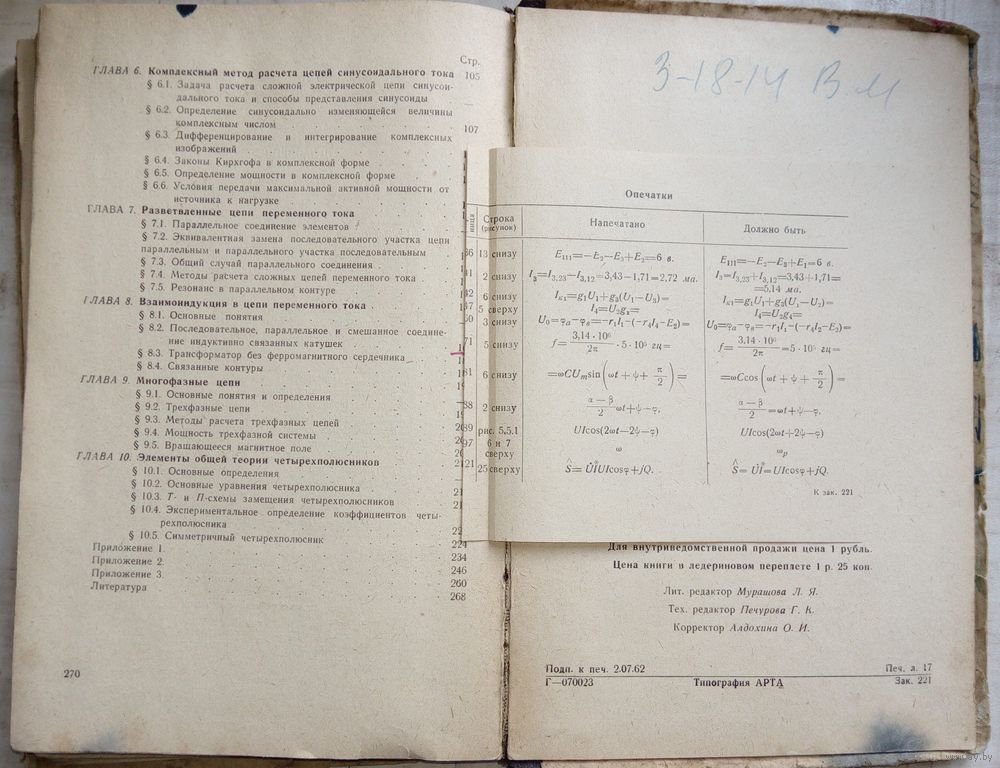 Стр.
ГЛАВА 6. Комплексный метод расчета цепей синусоидального тока 105
§ 6.1. Задача расчета сложной электрической цепи синусои-
дального тока и способы представления синусоиды
§ 6.2. Определение синусоидально изменяющейся величины
комплексным числом . 107
§ 6.3. Дифференцирование и интегрирование комплексных
изображений
§ 6.4. Законы Кирхгофа в комплексной форме
§ 6.5. Определение мощности в комплексной форме
§ 6.6. Условия передачи максимальной активной мощности от
источника к нагрузке
ГЛАВА 7. Разветвленные цепи переменного тока
§ 7.1. Параллельное соединение элементов
§ 7.2. Эквивалентная замена последовательного участка цепи
параллельным и параллельного участка последовательным
§ 7.3. Общий случай параллельного соединения
§ 7.4. Методы расчета сложных цепей переменного тока
§ 7.5. Резонанс в параллельном контуре
ГЛАВА 8. Взаимоиндукция в цепи переменного тока
§ 8.1. Основные понятия
§ 8.2. Последовательное, параллельное и смешанное соедине-
ние индуктивно связанных катушек
§ 8.3. Трансформатор без ферромагнитного сердечника
§ 8.4. Связанные контуры
ГЛАВА 9. Многофазные цепи
§ 9.1. Основные понятия и определения
§ 9.2. Трехфазные цепи
§ 9.3. Методы расчета трехфазных цепей
§ 9.4. Мощность трехфазной системы
§ 9.5. Вращающееся магнитное поле
ГЛАВА 10. Элементы общей теории четырехполюсников
§ 10.1. Основные определения
§ 10.2. Основные уравнения четырехполюсника
§ 10.3. Т- и П-схемы замещения четырехполюсников
§ 10.4. Экспериментальное определение коэффициентов четы-
рехполюсника
§ 10.5. Симметричный четырехполюсник 224
Приложение 1. 234
Приложение 2. 246
Приложение 3. 260
Литература 268
270
3-18-14 В М
Опечатки
ница Строка (рисунок) Напечатано Должно быть
13 снизу E₁₁₁=—E₂—E₃+E₂=6 в. E₁₁₁=—E₂—E₃+E₁=6 в.
2 снизу I₃=I₃,₂₃—I₃,₁₂=3,43—1,71=2,72 ма. I₃=I₃,₂₃+I₃,₁₂=3,43+1,71=
=5,14 ма.
6 снизу
5 сверху
3 снизу
5 снизу f= 3,14 · 10⁶ / 2π · 5 · 10⁵ гц= f= 3,14 · 10⁶ / 2π =5 · 10⁵ гц=
6 снизу =ωCUₘsin (ωt + ψ + π/2) = =ωCcos (ωt + ψ + π/2) =
2 снизу α — β / 2 ωt+ψ—φ, α — β / 2 =ωt+ψ—φ,
рис. 5,5.1 UIcos(2ωt—2ψ—φ) UIcos(2ωt+2ψ—φ)
6 и 7
сверху ω ωₚ
25 сверху Ŝ= U̇İUIcosφ+jQ. Ŝ= U̇İ=UIcosφ+jQ.
К зак. 221
Для внутриведомственной продажи цена 1 рубль.
Цена книги в ледериновом переплете 1 р. 25 коп.
Лит. редактор Мурашова Л. Я.
Тех. редактор Печурова Г. К.
Корректор Алдохина О. И.
Подп. к печ. 2.07.62 Печ. л. 17
Г—070023 Типография АРТА Зак. 221